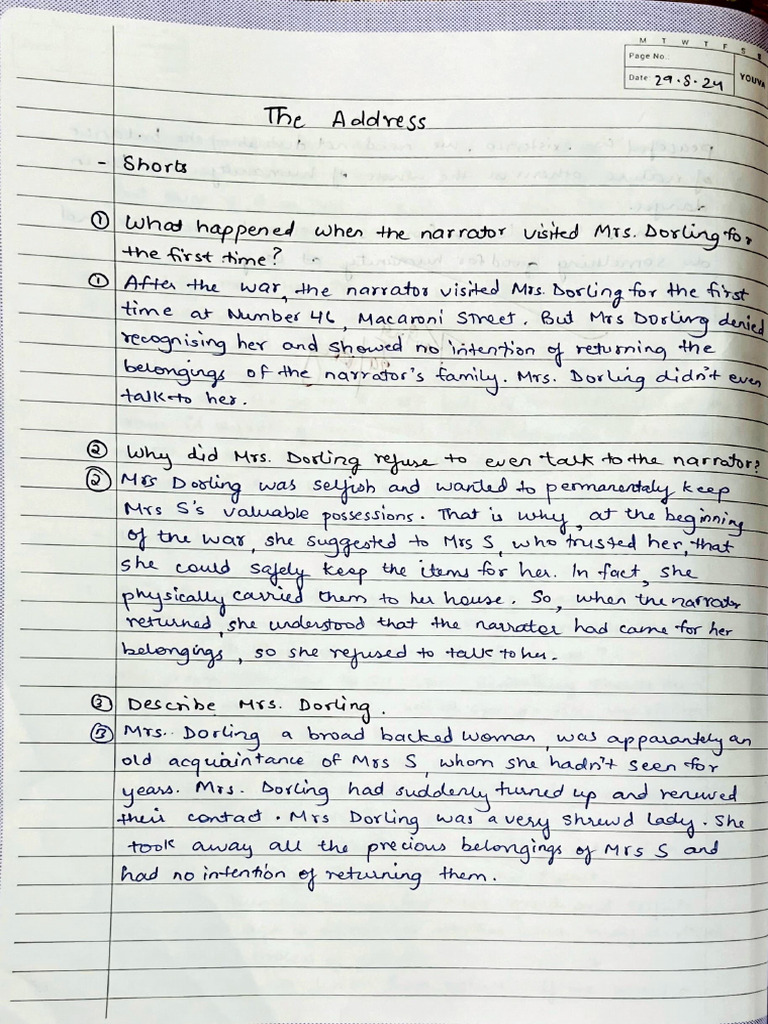 M T W T F S S
Page No.:
Date: 29.8.24
YOUVA
The Address
- Shorts
① What happened when the narrator visited Mrs. Dorling for
the first time?
① After the war, the narrator visited Mrs. Dorling for the first
time at Number 46, Macaroni Street. But Mrs Dorling denied
recognising her and showed no intention of returning the
belongings of the narrator's family. Mrs. Dorling didn't even
talk to her.
② Why did Mrs. Dorling refuse to even talk to the narrator?
② Mrs Dorling was selfish and wanted to permanentaly keep
Mrs S's valuable possessions. That is why, at the beginning
of the war, she suggested to Mrs S, who trusted her, that
she could safely keep the items for her. In fact, she
physically carried them to her house. So, when the narrator
returned, she understood that the narrator had came for her
belongings, so she refused to talk to her.
③ Describe Mrs. Dorling.
③ Mrs. Dorling a broad backed woman, was apparantely an
old acquaintance of Mrs S, whom she hadn't seen for
years. Mrs. Dorling had suddenly turned up and renewed
their contact. Mrs Dorling was a very shrewd lady. She
took away all the precious belongings of Mrs S and
had no intention of returning them.